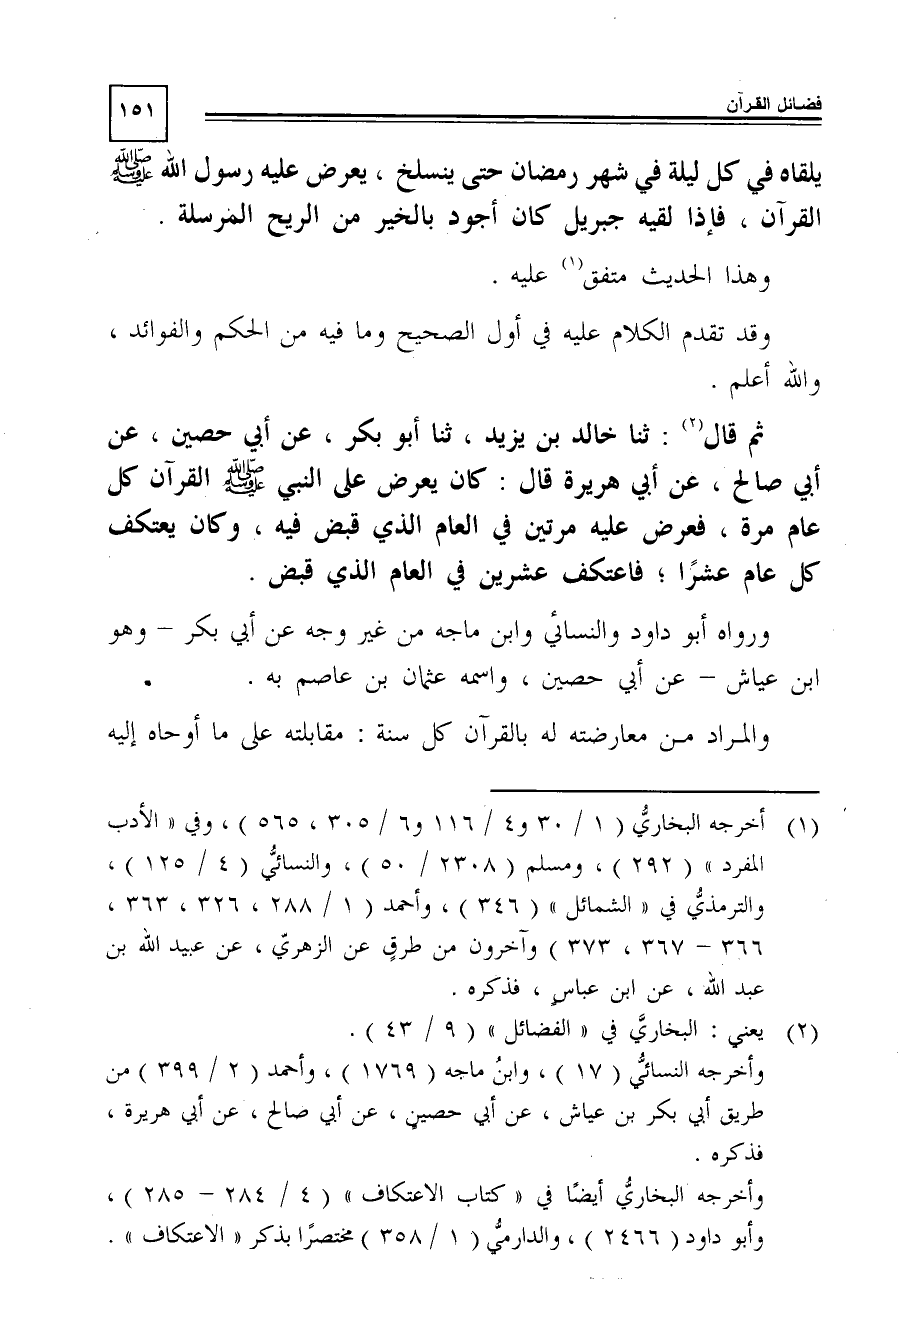 فضائل القرآن
١٥١
يلقاه في كل ليلة في شهر رمضان حتى ينسلخ ، يعرض عليه رسول الله ﷺ
القرآن ، فإذا لقيه جبريل كان أجود بالخير من الريح المرسلة .
وهذا الحديث متفق(١) عليه .
وقد تقدم الكلام عليه في أول الصحيح وما فيه من الحكم والفوائد ،
والله أعلم .
ثم قال(٢) : ثنا خالد بن يزيد ، ثنا أبو بكر ، عن أبي حصين ، عن
أبي صالح ، عن أبي هريرة قال : كان يعرض على النبي ﷺ القرآن كل
عام مرة ، فعرض عليه مرتين في العام الذي قبض فيه ، وكان يعتكف
كل عام عشرًا ؛ فاعتكف عشرين في العام الذي قبض .
ورواه أبو داود والنسائي وابن ماجه من غير وجه عن أبي بكر – وهو
ابن عياش – عن أبي حصين ، واسمه عثمان بن عاصم به .
والمراد من معارضته له بالقرآن كل سنة : مقابلته على ما أوحاه إليه
(١) أخرجه البخاريُّ ( ١ / ٣٠ و٤ / ١١٦ و٦ / ٣٠٥ ، ٥٦٥ ) ، وفي « الأدب
المفرد » ( ٢٩٢ ) ، ومسلم ( ٢٣٠٨ / ٥٠ ) ، والنسائيُّ ( ٤ / ١٢٥ ) ،
والترمذيُّ في « الشمائل » ( ٣٤٦ ) ، وأحمد ( ١ / ٢٨٨ ، ٣٢٦ ، ٣٦٣ ،
٣٦٦ – ٣٦٧ ، ٣٧٣ ) وآخرون من طرقٍ عن الزهريّ ، عن عبيد الله بن
عبد الله ، عن ابن عباسٍ ، فذكره .
(٢) يعني : البخاريَّ في « الفضائل » ( ٩ / ٤٣ ) .
وأخرجه النسائيُّ ( ١٧ ) ، وابنُ ماجه ( ١٧٦٩ ) ، وأحمد ( ٢ / ٣٩٩ ) من
طريق أبي بكر بن عياش ، عن أبي حصينٍ ، عن أبي صالح ، عن أبي هريرة ،
فذكره .
وأخرجه البخاريُّ أيضًا في « كتاب الاعتكاف » ( ٤ / ٢٨٤ – ٢٨٥ ) ،
وأبو داود ( ٢٤٦٦ ) ، والدارميُّ ( ١ / ٣٥٨ ) مختصرًا بذكر « الاعتكاف » .